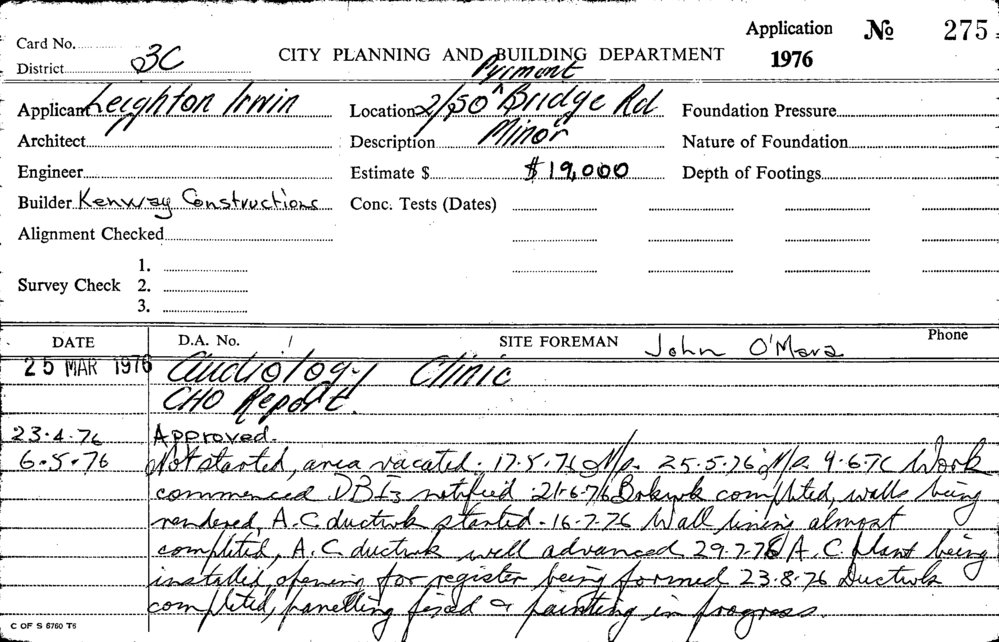 Application No 275
Card No.
District 3C
CITY PLANNING AND BUILDING DEPARTMENT 1976
Pyrmont
Applicant Leighton Irwin Location 2/50 ^ Bridge Rd Foundation Pressure
Architect Description Minor Nature of Foundation
Engineer Estimate $ $19,000 Depth of Footings
Builder Kenway Constructions Conc. Tests (Dates)
Alignment Checked
1.
Survey Check 2.
3.
DATE D.A. No. / SITE FOREMAN John O'Mara Phone
25 MAR 1976 Audiology Clinic
CHO Report.
23.4.76 Approved.
6.5.76 Not started, area vacated. 17.5.76 N/s. 25.5.76 N/s 9.6.76 Work
commenced DBI3 notified 21.6.76 Bwkwk completed, walls being
rendered, A.C. ductwk started - 16.7.76 Wall lining almost
completed, A.C ductwk well advanced 29.7.76 A.C. plant being
installed, opening for register being formed 23.8.76 Ductwk
completed, panelling fixed & painting in progress.
C OF S 6760 T6